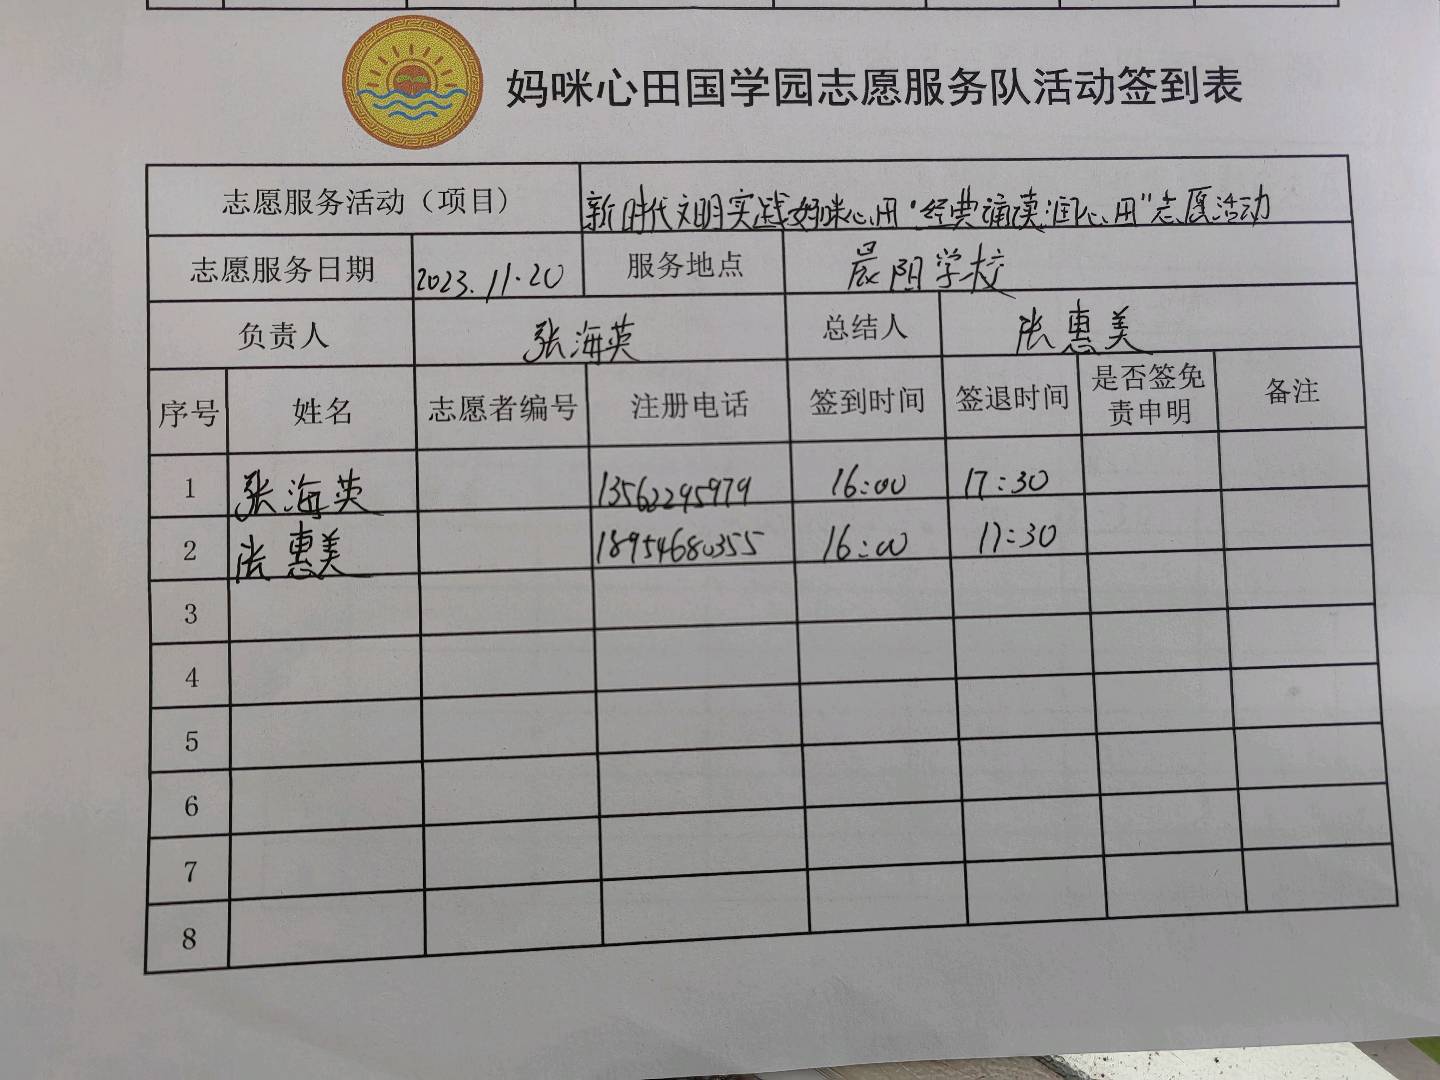 妈咪心田国学园志愿服务队活动签到表
志愿服务活动（项目） 新时代文明实践妈咪心田“经典诵读润心田”志愿活动
志愿服务日期 2023.11.20 服务地点 晨阳学校
负责人 张海英 总结人 张惠美
序号 姓名 志愿者编号 注册电话 签到时间 签退时间 是否签免责申明 备注
1 张海英 13562295979 16:00 17:30
2 张惠美 18954680355 16:00 17:30
3
4
5
6
7
8